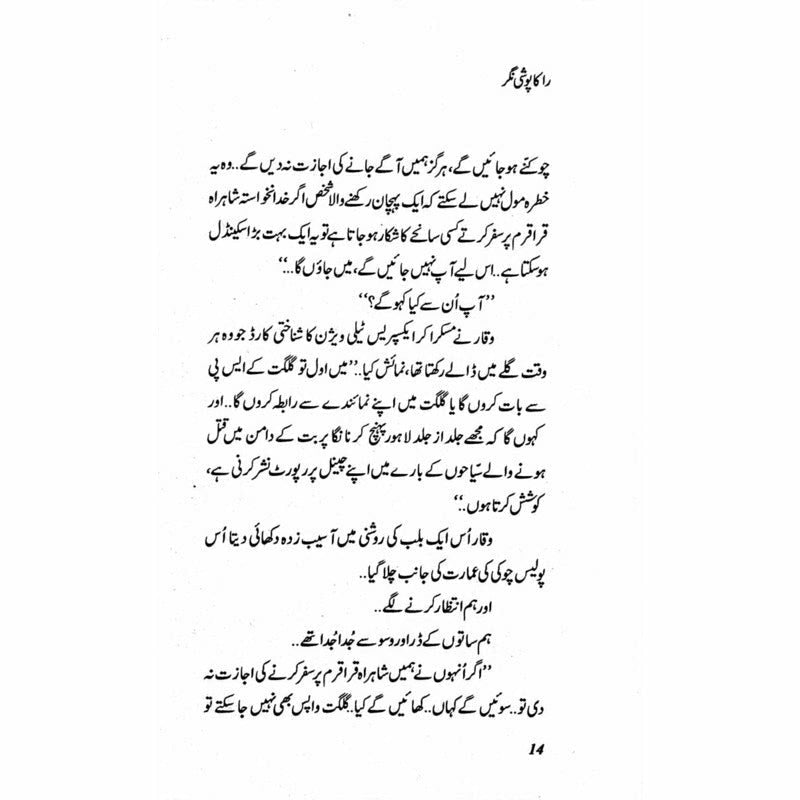 راکاپوشی نگر
چوکنّے ہو جائیں گے، ہرگز ہمیں آگے جانے کی اجازت نہ دیں گے.. وہ یہ
خطرہ مول نہیں لے سکتے کہ ایک پہچان رکھنے والا شخص اگر خدانخواستہ شاہراہ
قراقرم پر سفر کرتے کسی سانحے کا شکار ہو جاتا ہے تو یہ ایک بہت بڑا سکینڈل
ہو سکتا ہے.. اس لیے آپ نہیں جائیں گے، میں جاؤں گا...‘‘
’’آپ اُن سے کیا کہو گے؟‘‘
وقار نے مسکرا کر ایکسپریس ٹیلی ویژن کا شناختی کارڈ جو وہ ہر
وقت گلے میں ڈالے رکھتا تھا، نمائش کیا..’’میں اول تو گلگت کے ایس پی
سے بات کروں گا یا گلگت میں اپنے نمائندے سے رابطہ کروں گا.. اور
کہوں گا کہ مجھے جلد از جلد لاہور پہنچ کر نانگا پربت کے دامن میں قتل
ہونے والے سیّاحوں کے بارے میں اپنے چینل پر رپورٹ نشر کرنی ہے،
کوشش کرتا ہوں..‘‘
وقار اُس ایک بلب کی روشنی میں آسیب زدہ دکھائی دیتا اُس
پولیس چوکی کی عمارت کی جانب چلا گیا..
اور ہم انتظار کرنے لگے..
ہم ساتوں کے ڈر اور وسوسے جُدا جُدا تھے..
’’اگر اُنہوں نے ہمیں شاہراہ قراقرم پر سفر کرنے کی اجازت نہ
دی تو.. سوئیں گے کہاں.. کھائیں گے کیا.. گلگت واپس بھی نہیں جا سکتے تو
14